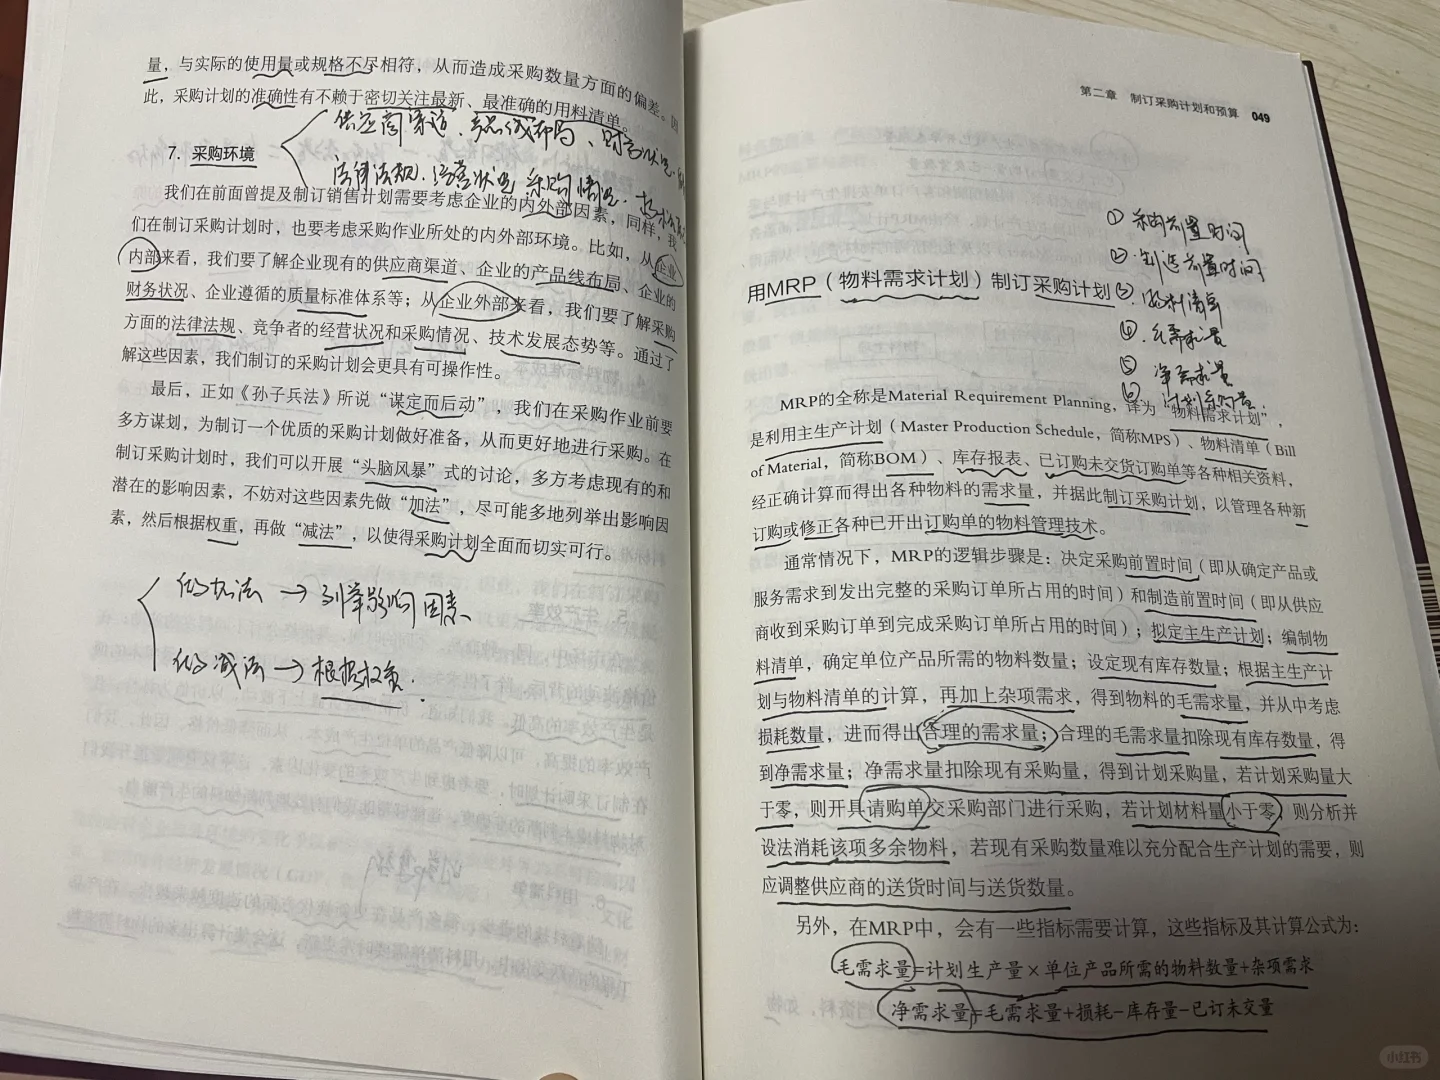 量，与实际的使用量或规格不尽相符，从而造成采购数量方面的偏差。因
此，采购计划的准确性有赖于密切关注最新、最准确的用料清单。
供应商渠道、产品线布局、财务状况、
7. 采购环境
法律法规、经营状况、采购情况、技术发展
我们在前面曾提及制订销售计划需要考虑企业的内外部因素，同样，我
们在制订采购计划时，也要考虑采购作业所处的内外部环境。比如，从企业
内部来看，我们要了解企业现有的供应商渠道、企业的产品线布局、企业的
财务状况、企业遵循的质量标准体系等；从企业外部来看，我们要了解采购
方面的法律法规、竞争者的经营状况和采购情况、技术发展态势等。通过了
解这些因素，我们制订的采购计划会更具有可操作性。
最后，正如《孙子兵法》所说“谋定而后动”，我们在采购作业前要
多方谋划，为制订一个优质的采购计划做好准备，从而更好地进行采购。在
制订采购计划时，我们可以开展“头脑风暴”式的讨论，多方考虑现有的和
潜在的影响因素，不妨对这些因素先做“加法”，尽可能多地列举出影响因
素，然后根据权重，再做“减法”，以使得采购计划全面而切实可行。
做加法→列举影响因素
做减法→根据权重.
第二章 制订采购计划和预算 049
① 采购前置时间
② 制造前置时间
用MRP（物料需求计划）制订采购计划
③ 物料清单
④ 毛需求量
⑤ 净需求量
⑥ 计划采购量.
MRP的全称是Material Requirement Planning，译为“物料需求计划”，
是利用主生产计划（Master Production Schedule，简称MPS）、物料清单（Bill
of Material，简称BOM）、库存报表、已订购未交货订购单等各种相关资料，
经正确计算而得出各种物料的需求量，并据此制订采购计划，以管理各种新
订购或修正各种已开出订购单的物料管理技术。
通常情况下，MRP的逻辑步骤是：决定采购前置时间（即从确定产品或
服务需求到发出完整的采购订单所占用的时间）和制造前置时间（即从供应
商收到采购订单到完成采购订单所占用的时间）；拟定主生产计划；编制物
料清单，确定单位产品所需的物料数量；设定现有库存数量；根据主生产计
划与物料清单的计算，再加上杂项需求，得到物料的毛需求量，并从中考虑
损耗数量，进而得出合理的需求量；合理的毛需求量扣除现有库存数量，得
到净需求量；净需求量扣除现有采购量，得到计划采购量，若计划采购量大
于零，则开具请购单交采购部门进行采购，若计划材料量小于零，则分析并
设法消耗该项多余物料，若现有采购数量难以充分配合生产计划的需要，则
应调整供应商的送货时间与送货数量。
另外，在MRP中，会有一些指标需要计算，这些指标及其计算公式为：
毛需求量=计划生产量×单位产品所需的物料数量+杂项需求
净需求量=毛需求量+损耗-库存量-已订未交量
小红书